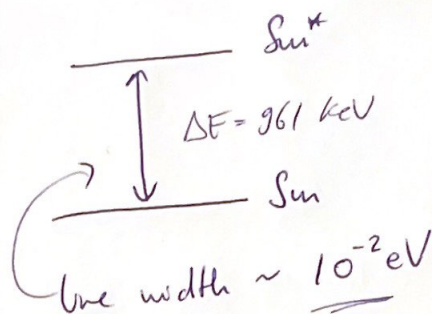 Sm*
ΔE = 961 keV
Sm
line width ~ 10⁻² eV